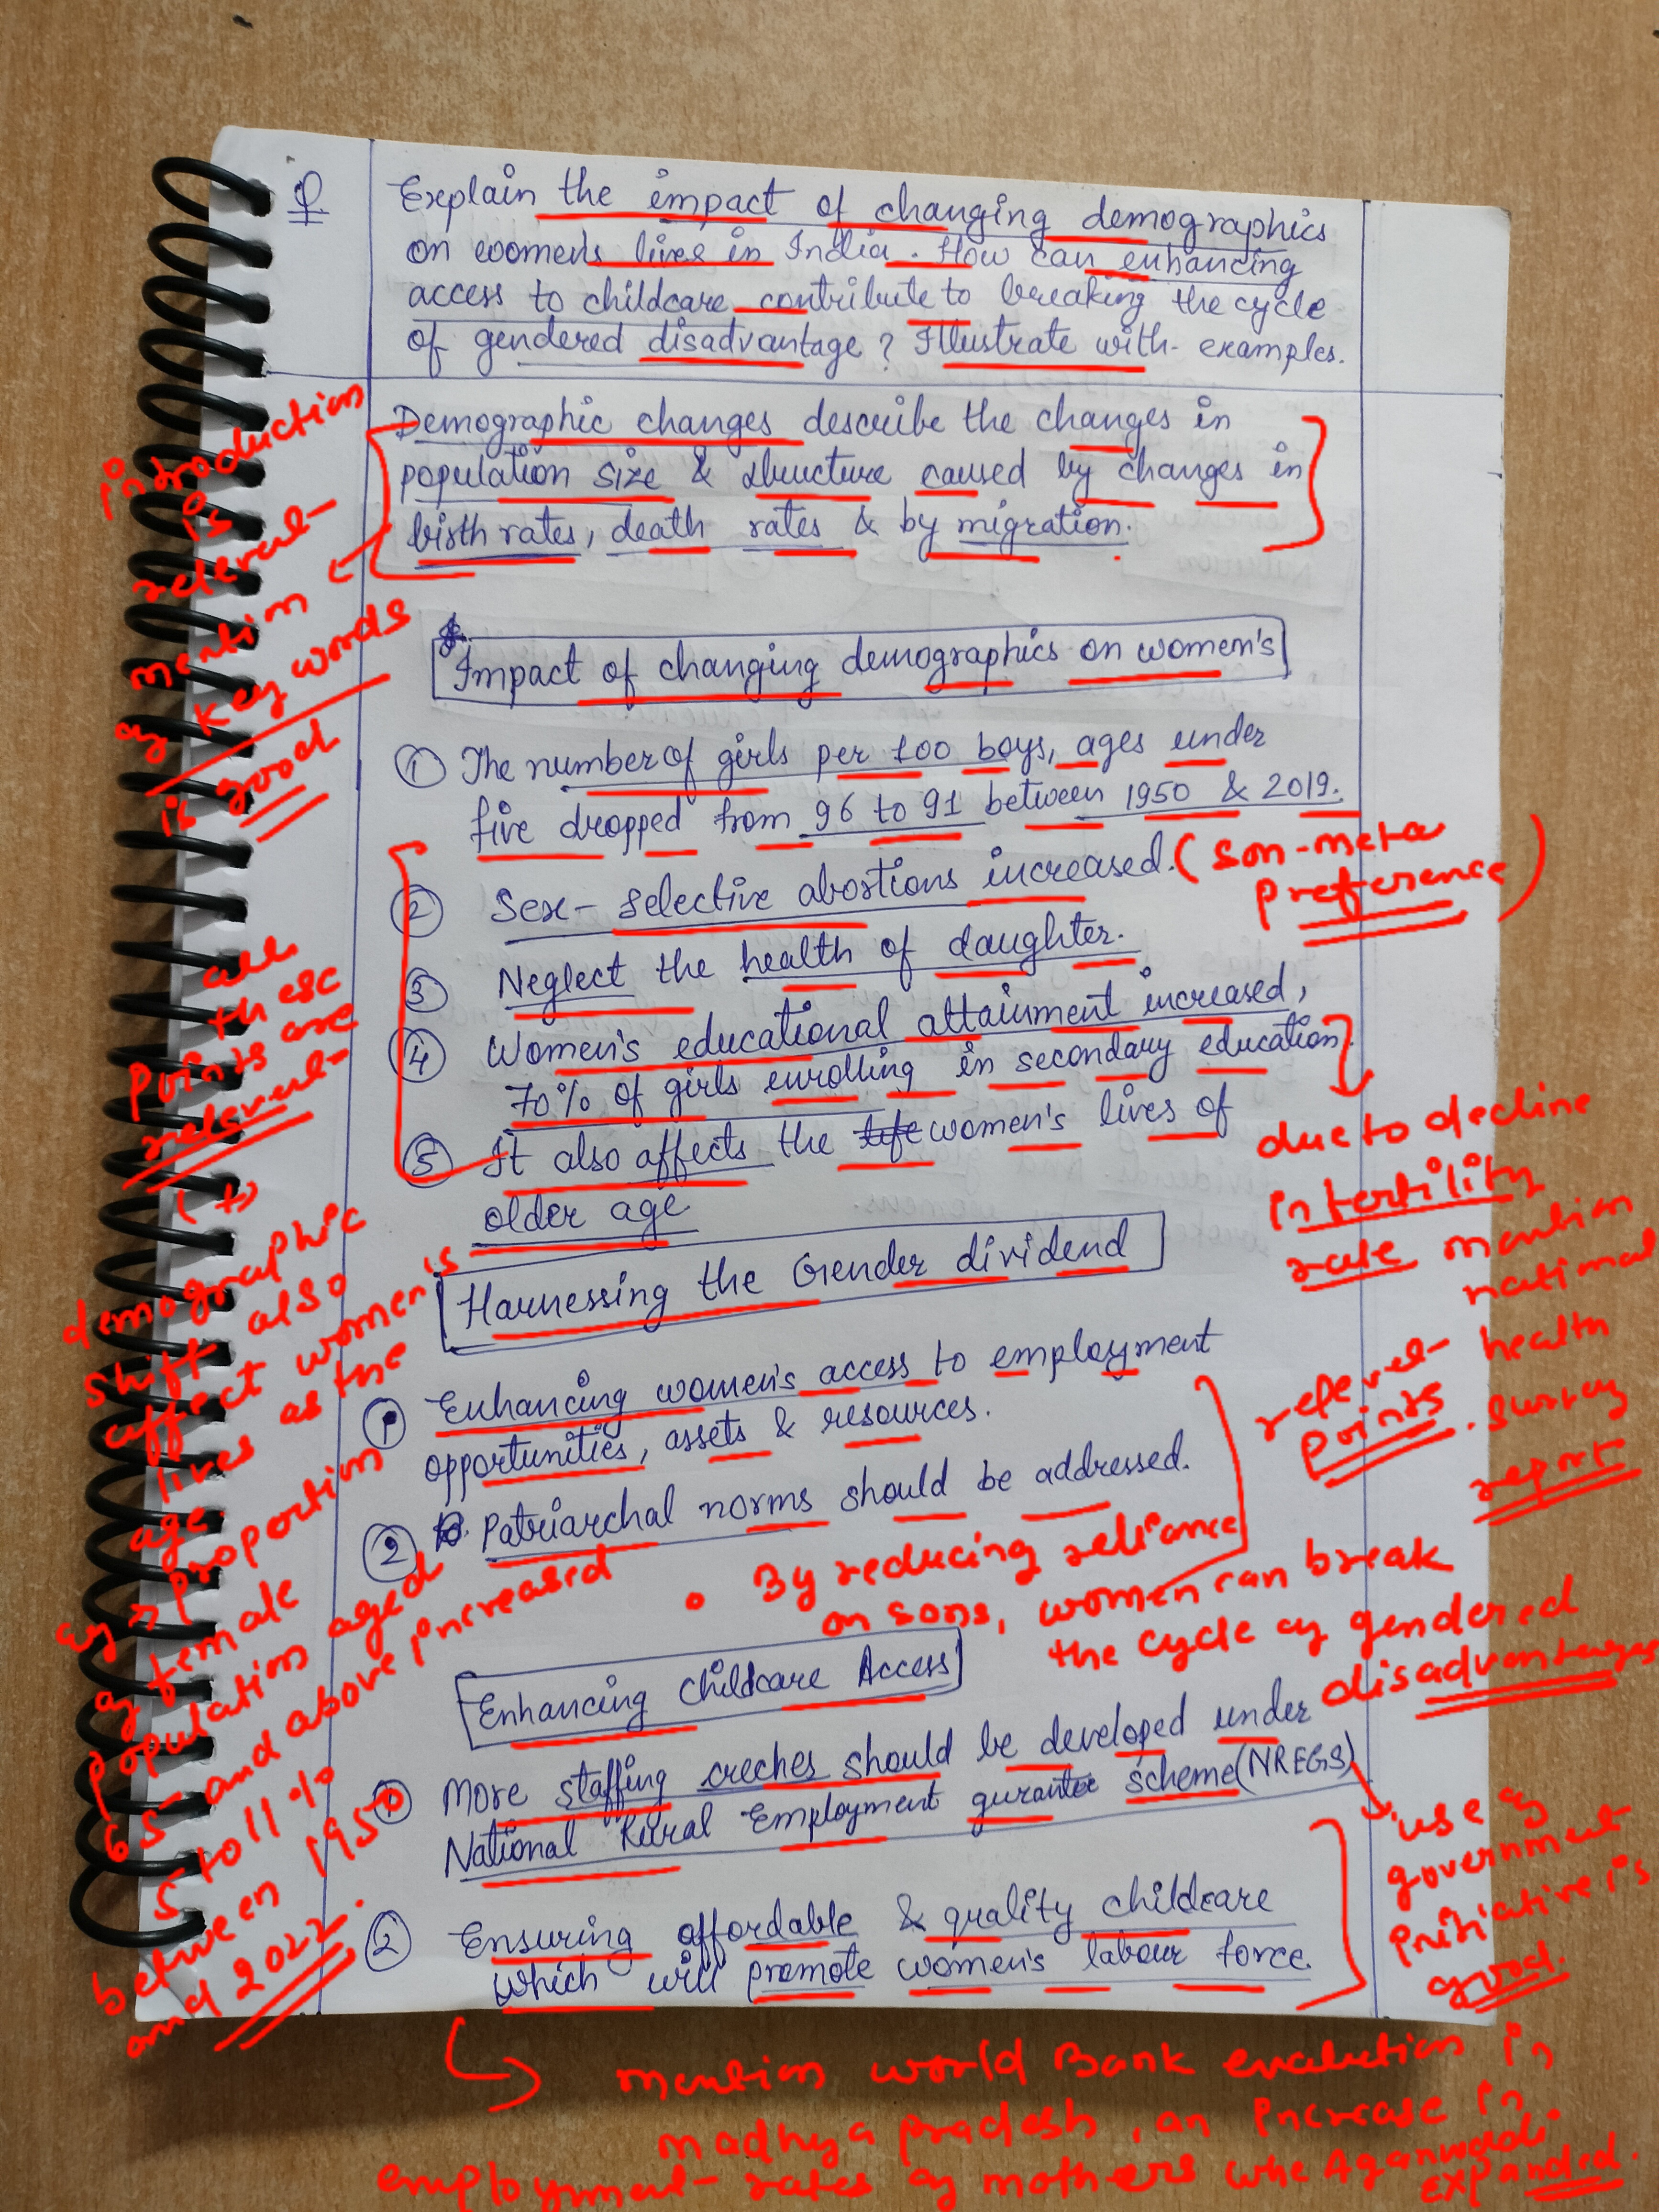 Q
Explain the impact of changing demographics
on women's lives in India. How can enhancing
access to childcare contribute to breaking the cycle
of gendered disadvantage? Illustrate with examples.
Demographic changes describe the changes in
population size & structure caused by changes in
birth rates, death rates & by migration.
introduction
is
relevant
mention
of key words
is good
Impact of changing demographics on women's
① The number of girls per 100 boys, ages under
five dropped from 96 to 91 between 1950 & 2019.
② Sex-selective abortions increased.
(son-meta
preference)
③ Neglect the health of daughter.
④ Women's educational attainment increased,
70% of girls enrolling in secondary education.
⑤ It also affects the women's lives of
older age
all
these
points are
relevant
(+)
due to decline
in fertility
rate mention
national
health
survey
report
demographic
shift also
affect women's
lives as the
age
proportion
of female
population aged
65 and above increased
5 to 11 %
between 1950
and 2022.
Harnessing the Gender dividend
① Enhancing women's access to employment
opportunities, assets & resources.
② Patriarchal norms should be addressed.
relevent
points.
• By reducing reliance
on sons, women can break
the cycle of gendered
disadvantages
Enhancing Childcare Access
① More staffing creches should be developed under
National Rural Employment gurante scheme (NREGS)
② Ensuring affordable & quality childcare
which will promote women's labour force.
use of
government
initiative is
good.
mention world Bank evaluation in
madhya pradesh, an increase in
employment rates of mothers whe Aganwadi
expanded.